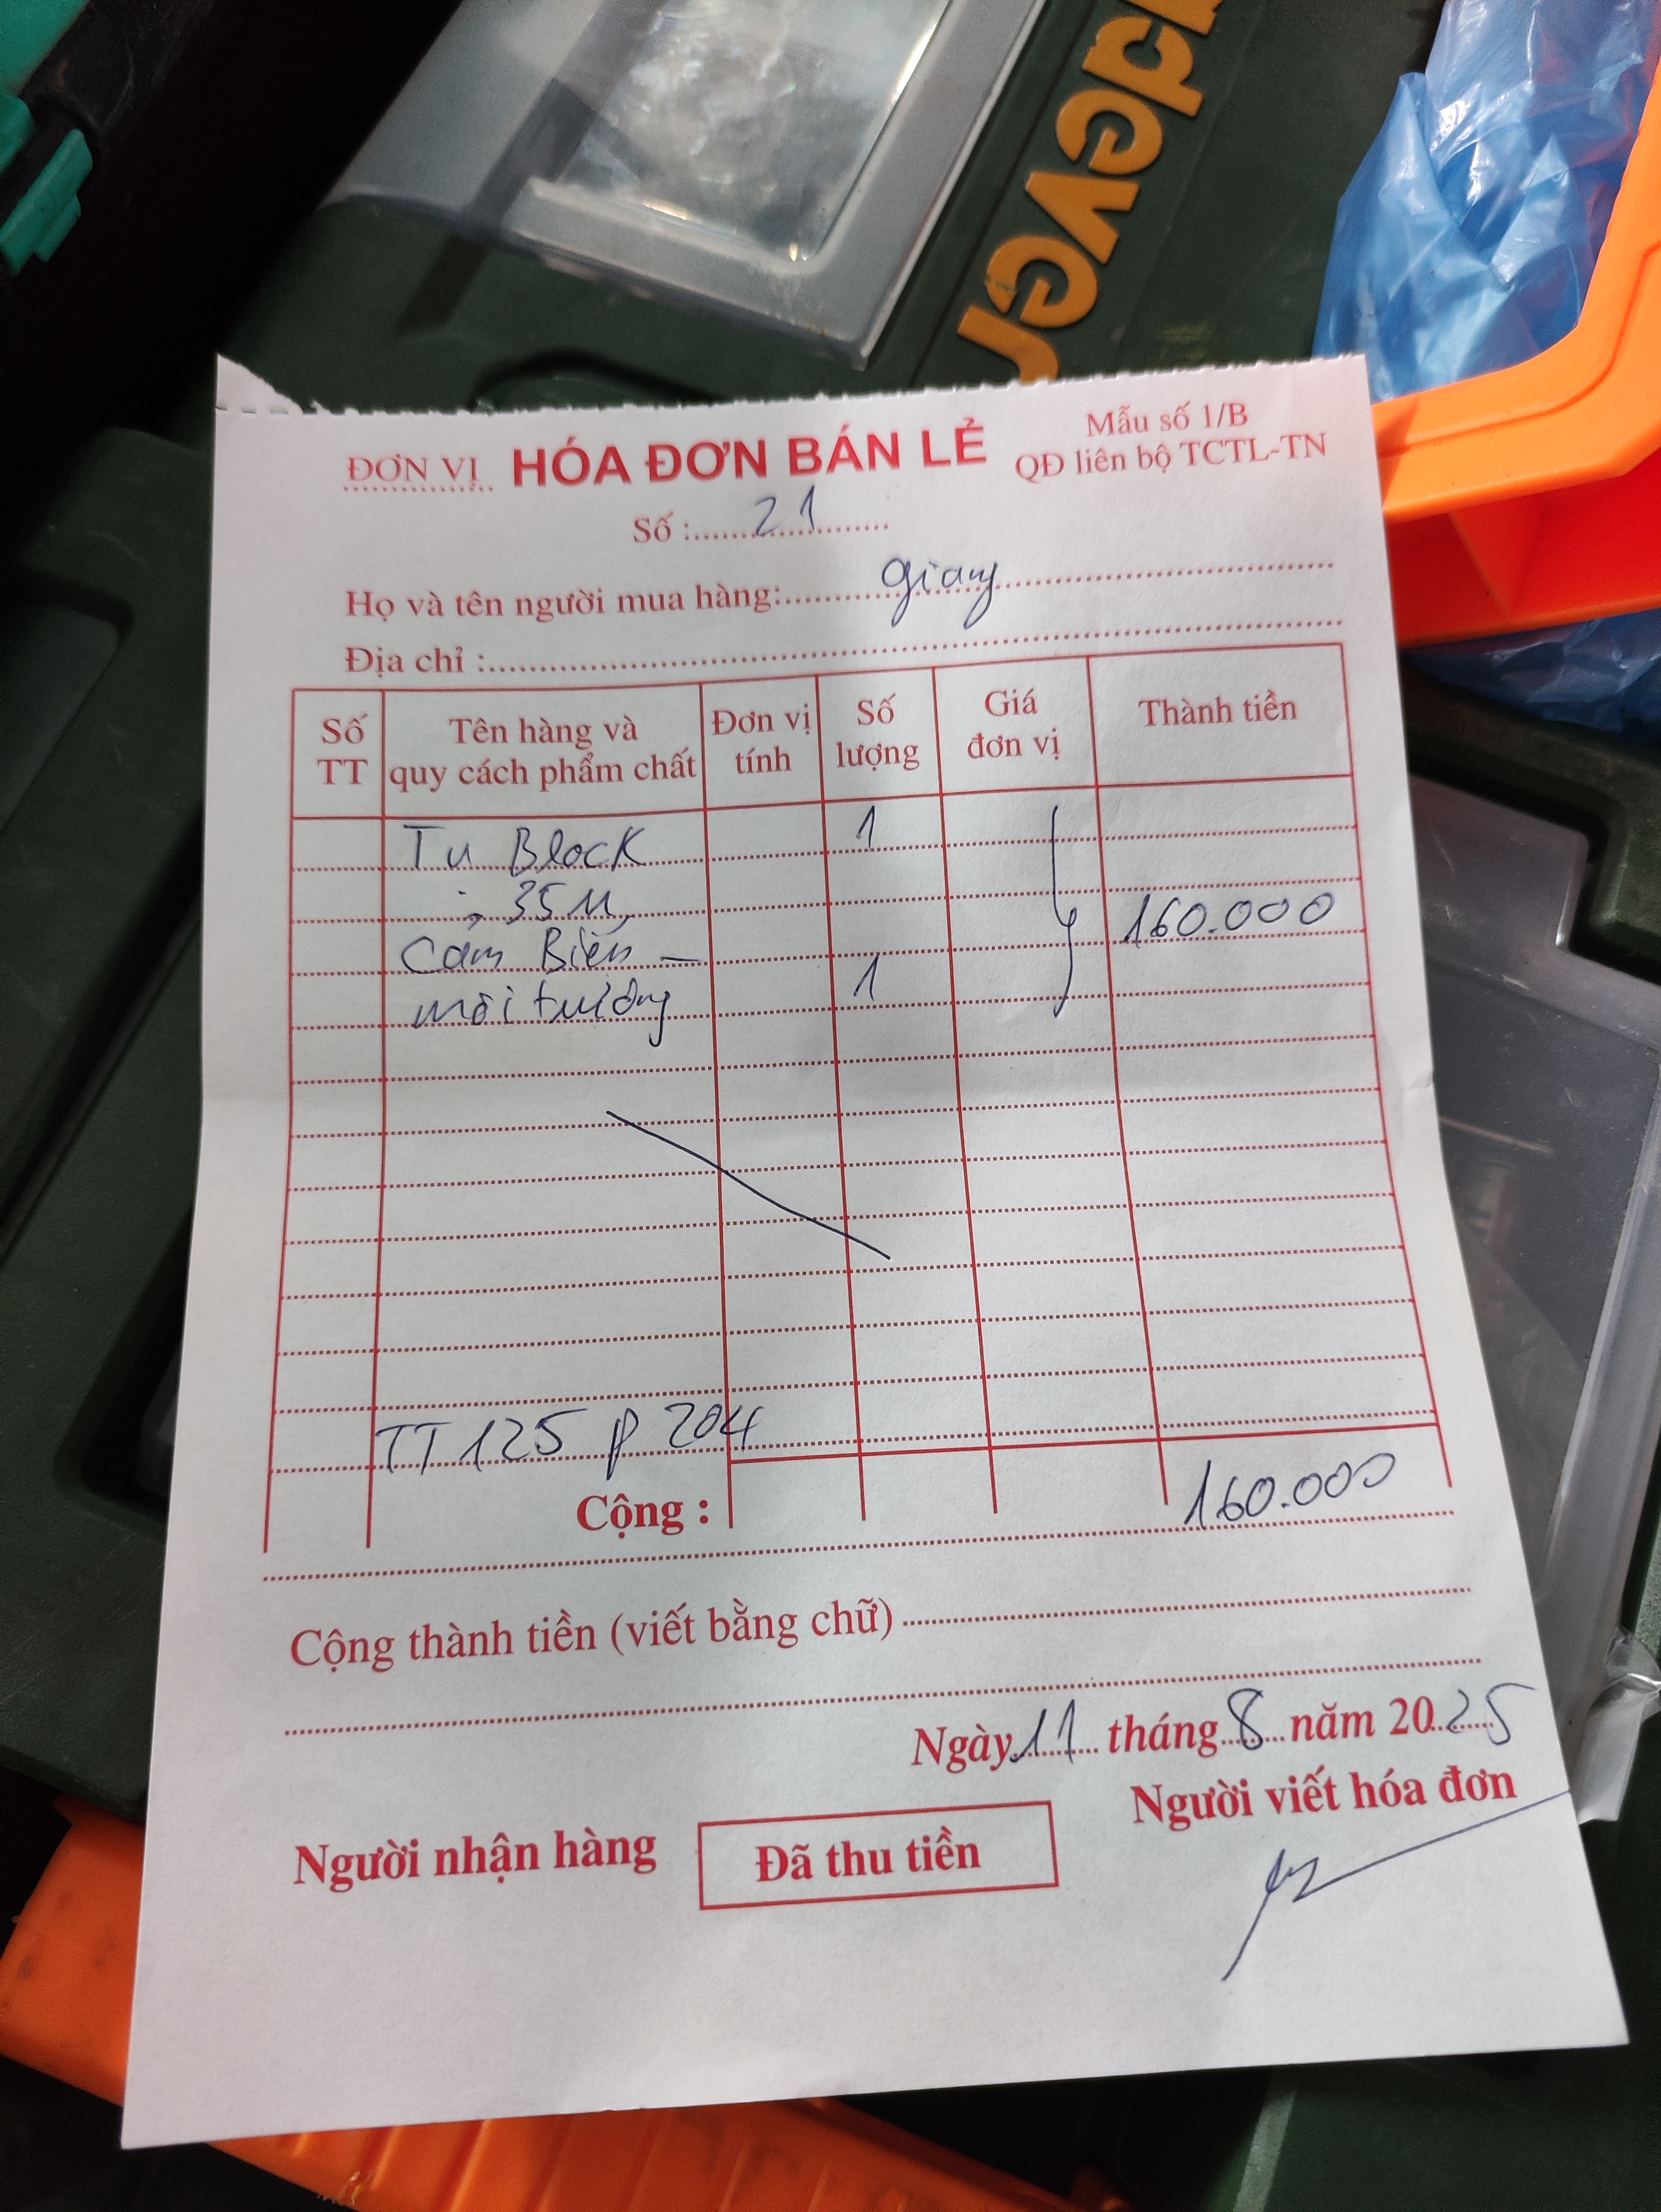 ndever
ĐƠN VỊ HÓA ĐƠN BÁN LẺ
Mẫu số 1/B
QĐ liên bộ TCTL-TN
Số : 21
Họ và tên người mua hàng: Giang
Địa chỉ :
Số TT Tên hàng và quy cách phẩm chất Đơn vị tính Số lượng Giá đơn vị Thành tiền
Tụ Block 1
35 M
160.000
Cảm Biến
môi trường 1
TT 125 P 204
Cộng : 160.000
Cộng thành tiền (viết bằng chữ)
Ngày 11 tháng 8 năm 2025
Người viết hóa đơn
Người nhận hàng Đã thu tiền